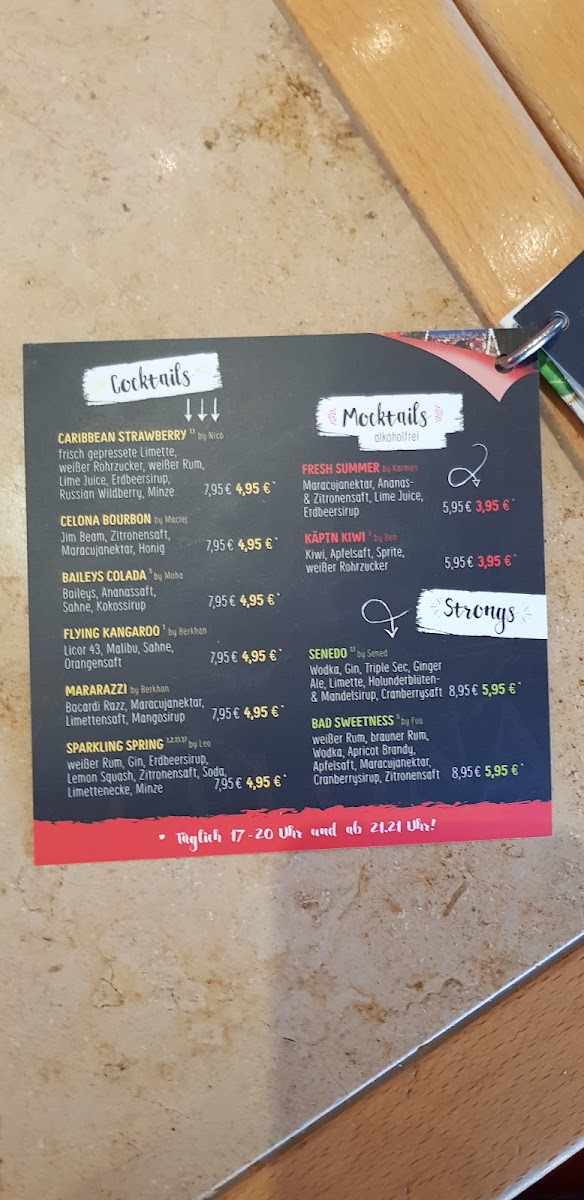 Cocktails
CARIBBEAN STRAWBERRY 13 by Nico
frisch gepresste Limette,
weißer Rohrzucker, weißer Rum,
Lime Juice, Erdbeersirup,
Russian Wildberry, Minze 7,95 € 4,95 €*
CELONA BOURBON by Maciej
Jim Beam, Zitronensaft,
Maracujanektar, Honig 7,95 € 4,95 €*
BAILEYS COLADA by Maha
Baileys, Ananassaft,
Sahne, Kokossirup 7,95 € 4,95 €*
FLYING KANGAROO 1 by Berkhan
Licor 43, Malibu, Sahne,
Orangensaft 7,95 € 4,95 €*
MARARAZZI by Berkhan
Bacardi Razz, Maracujanektar,
Limettensaft, Mangosirup 7,95 € 4,95 €*
SPARKLING SPRING by Lea
weißer Rum, Gin, Erdbeersirup,
Lemon Squash, Zitronensaft, Soda,
Limettenecke, Minze 7,95 € 4,95 €*
Mocktails
alkoholfrei
FRESH SUMMER by Karman
Maracujanektar, Ananas-
& Zitronensaft, Lime Juice,
Erdbeersirup 5,95 € 3,95 €*
KÄPTN KIWI by Ben
Kiwi, Apfelsaft, Sprite,
weißer Rohrzucker 5,95 € 3,95 €*
Strongs
SENEDO 13 by Sened
Wodka, Gin, Triple Sec, Ginger
Ale, Limette, Holunderblüten-
& Mandelsirup, Cranberrysaft 8,95 € 5,95 €*
BAD SWEETNESS by Fua
weißer Rum, brauner Rum,
Wodka, Apricot Brandy,
Apfelsaft, Maracujanektar,
Cranberrysirup, Zitronensaft 8,95 € 5,95 €*
* Täglich 17-20 Uhr und ab 21.21 Uhr!